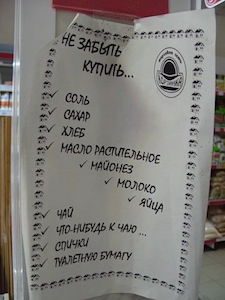 НЕ ЗАБЫТЬ
КУПИТЬ...
СОЛЬ
САХАР
ХЛЕБ
МАСЛО РАСТИТЕЛЬНОЕ
МАЙОНЕЗ
МОЛОКО
ЯЙЦА
ЧАЙ
ЧТО-НИБУДЬ К ЧАЮ ...
СПИЧКИ
ТУАЛЕТНУЮ БУМАГУ